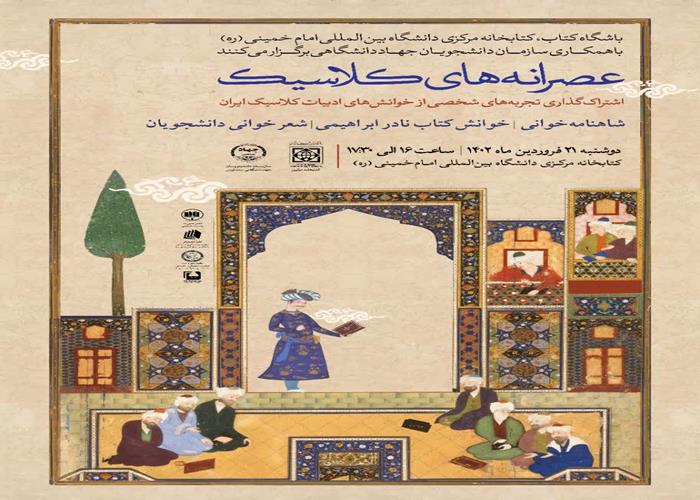 باشگاه کتاب، کتابخانه مرکزی دانشگاه بین المللی امام خمینی (ره)
با همکاری سازمان دانشجویان جهاد دانشگاهی برگزار می‌کنند
عصرانه‌های کلاسیک
اشتراک‌گذاری تجربه‌های شخصی از خوانش‌های ادبیات کلاسیک ایران
شاهنامه خوانی | خوانش کتاب نادر ابراهیمی | شعر خوانی دانشجویان
دوشنبه ۲۱ فروردین ماه ۱۴۰۲ | ساعت ۱۶ الی ۱۷:۳۰
کتابخانه مرکزی دانشگاه بین‌المللی امام خمینی (ره)